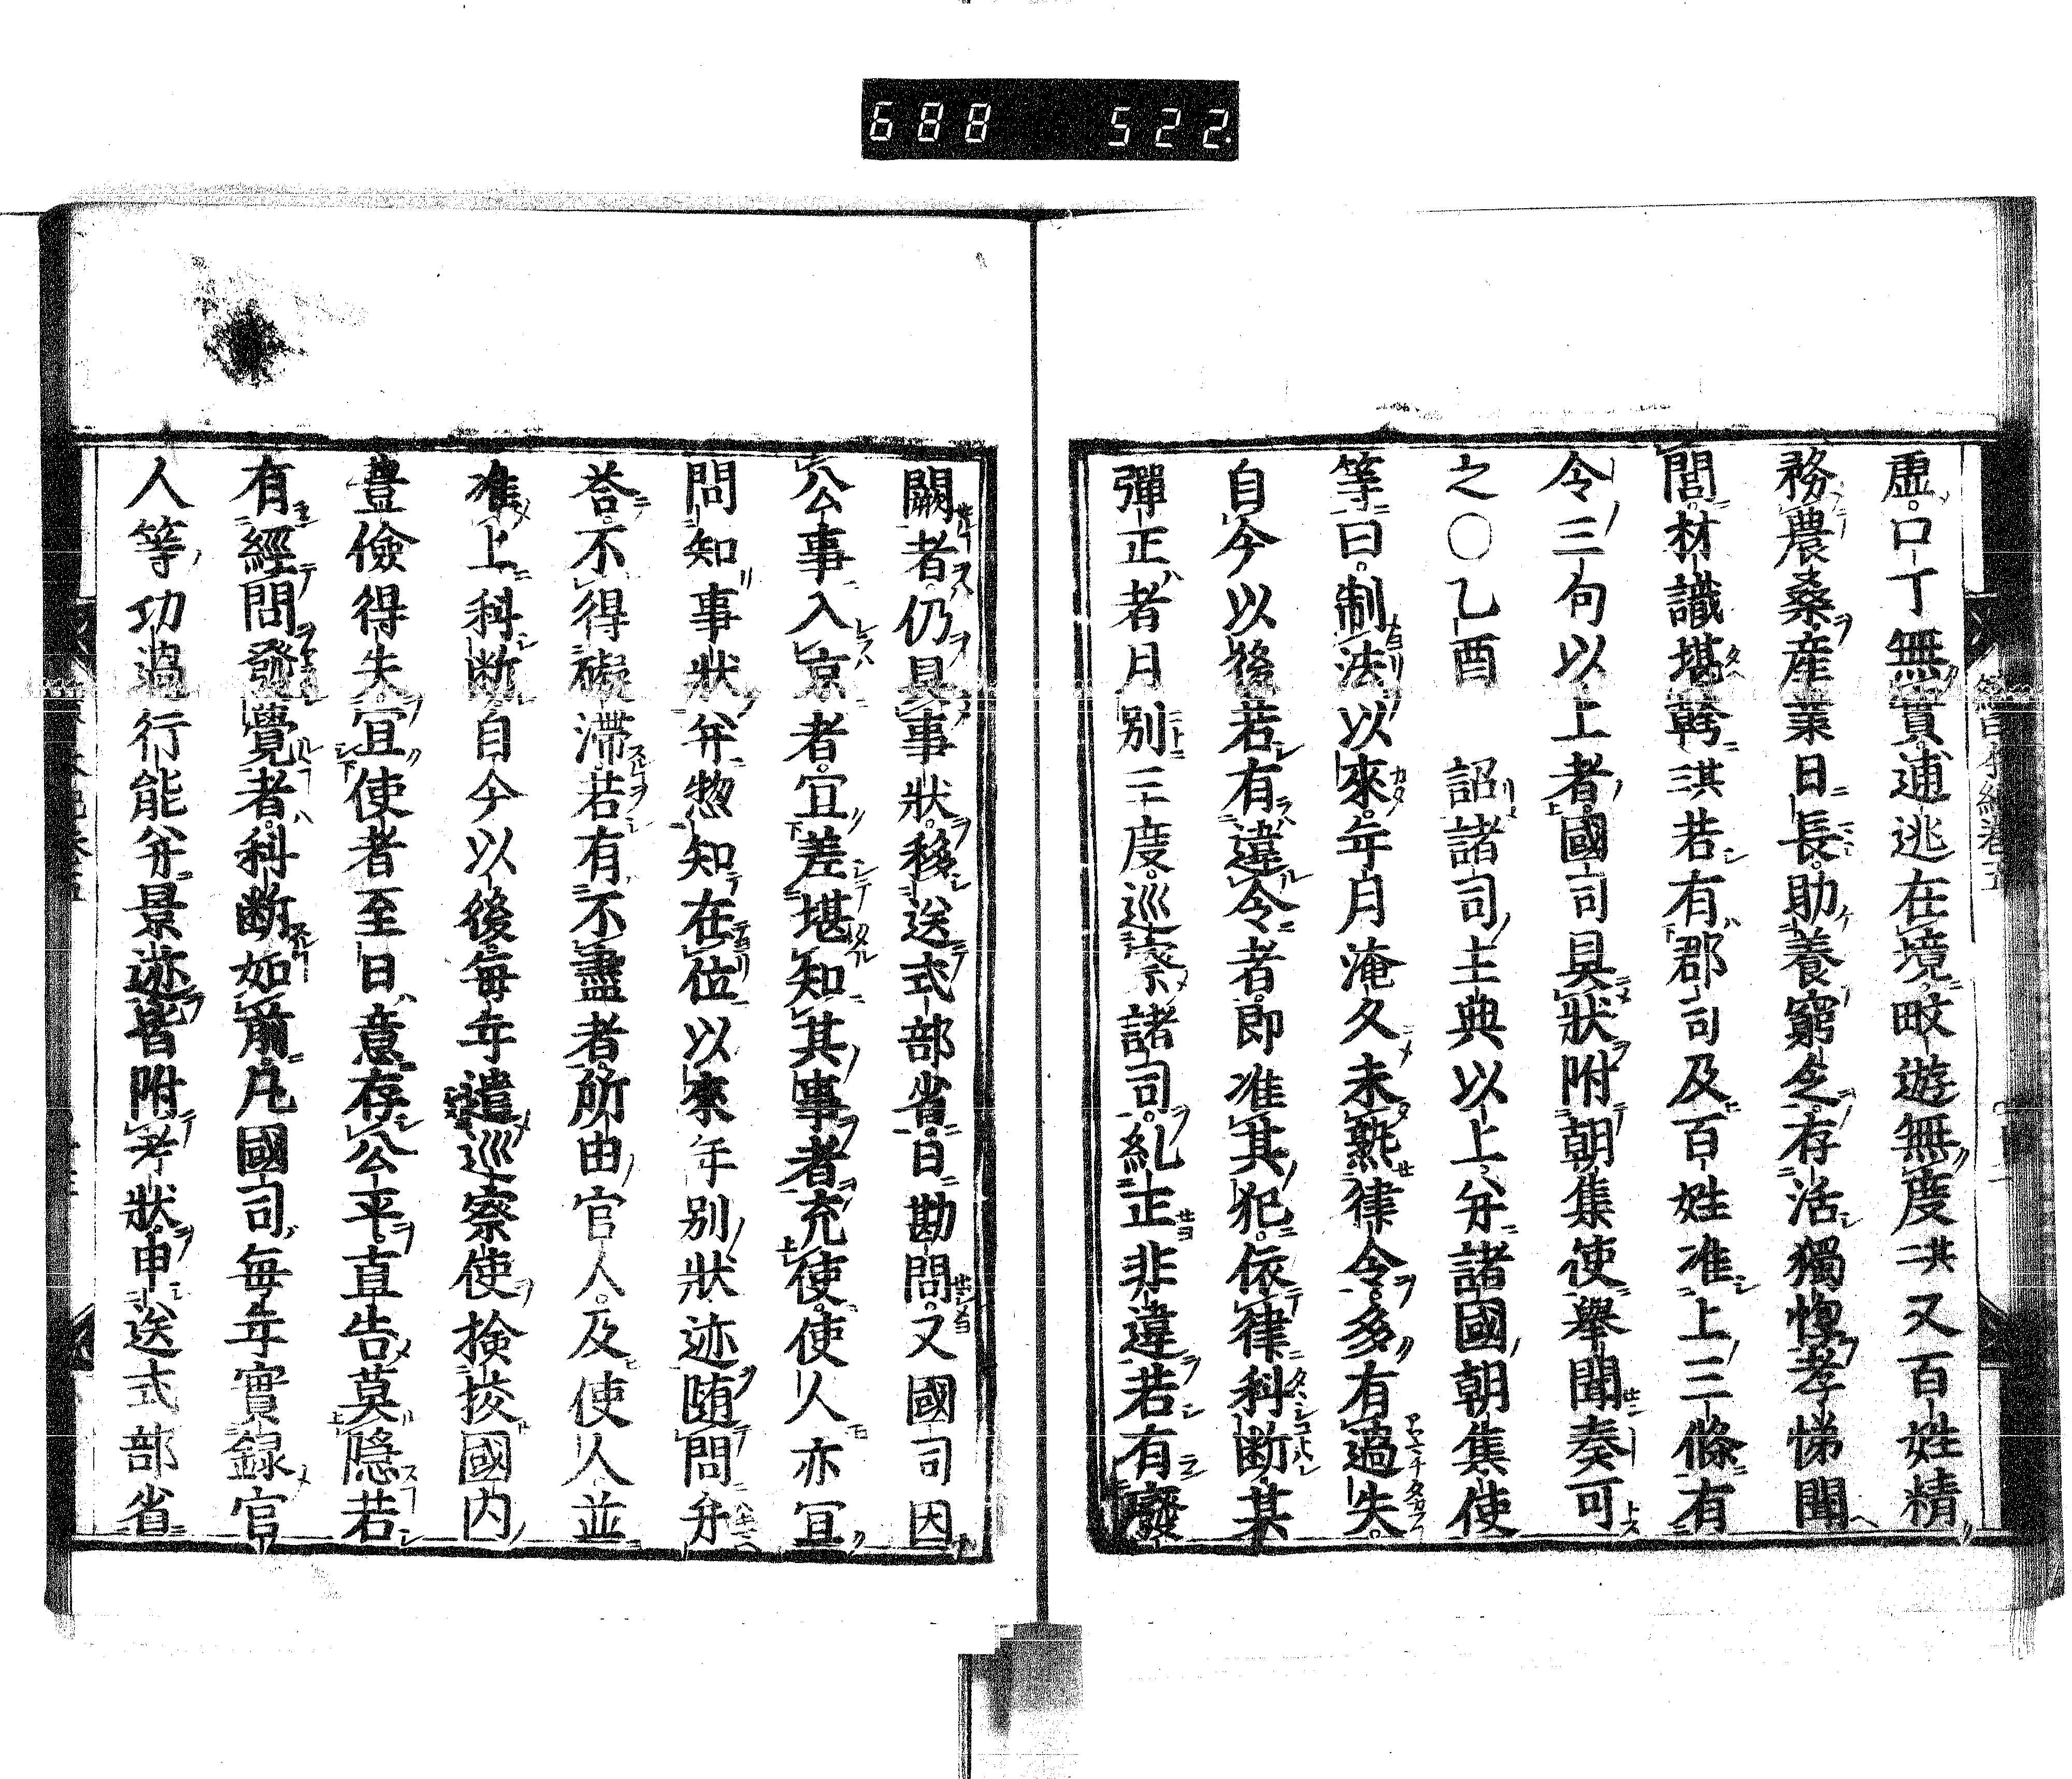 688 522
虚。口丁無實逋逃在境畋遊無度其二又百姓精
務農桑産業日長。助養窮乏。存活獨惸孝悌聞
閭。材識堪幹其三若有郡司及百姓准上三條有
合三句以上者。國司具狀附朝集使舉聞奏可
之〇乙酉 詔諸司主典以上、并諸國朝集使
等曰。制法以來。年月淹久未熟律令。多有過失。
自今以後若有違令者。即准其犯。依律科断。其
彈正者月别三度。巡察諸司。糺正非違若有廢
闕者。仍具事狀。移送式部省。日勘問。又國司因
公事入京者。宜差堪知其事者充使。使人亦宜
問知事狀并惣知在位以來年別狀迹隨問弁
荅。不得礙滯。若有不盡者。所由官人。及使人並
准上科断自今以後每年遣巡察使檢挍國内
豊儉得失宜使者至日意存公平。直告莫隠若
有經問發覺者。科断如前凡國司每年實録官
人等功過行能并景迹皆附考狀。申送式部省